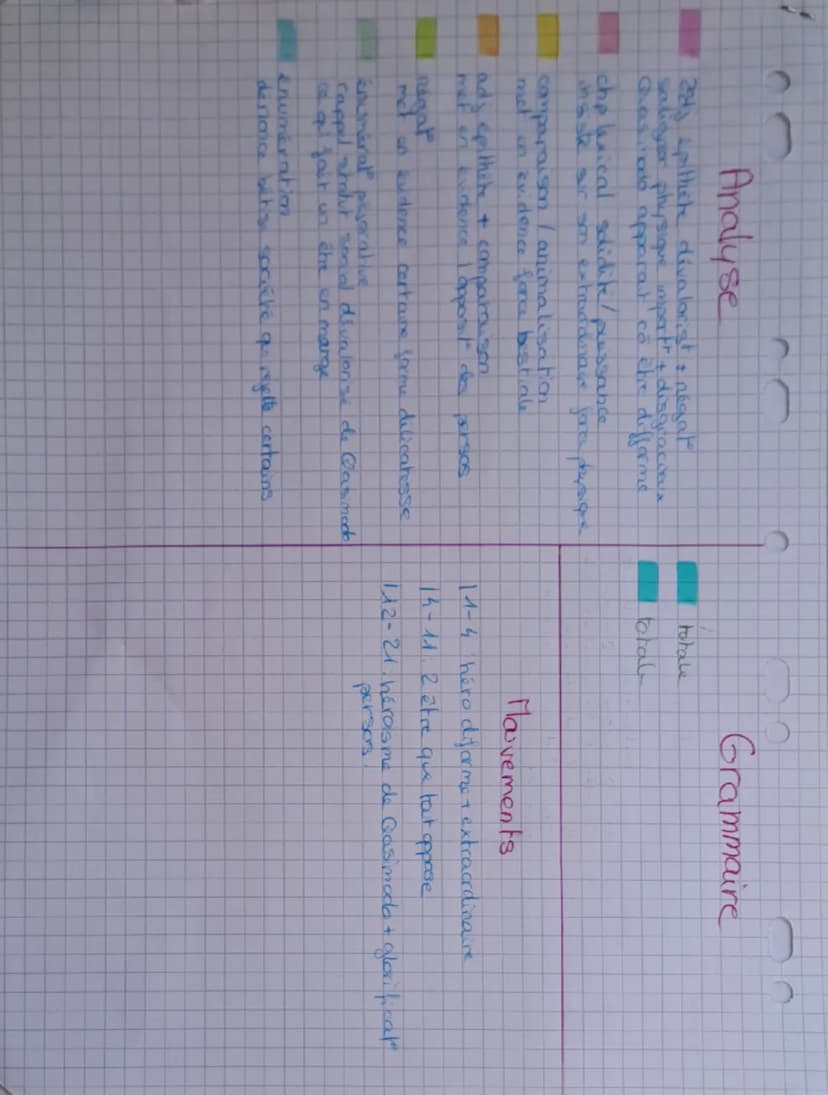 Analyse
adj épithète dévalorist + négat°
saligner physique impft + disgracieux
Quasimodo apparait cô être difforme
chp lexical solidité/puissance
insiste sur son extraordinaire force physique
comparaison / animalisation
met en évidence force bestiale
adj épithète + comparaison
met en évidence l'opposit° des persos
négat°
met en évidence certaine forme délicatesse
énumérat° péjorative
rappel statut social dévalorisé de Qasimodo
ce qui fait un être en marge
énumération
dénonce bêtise société qui rejette certains
Grammaire
totale
totale
Mouvements
l 1-4 : héro difforme + extraordinaire
l 4-11 : 2 être que tout oppose
l 12-21 : héroisme de Qasimodo + glorificat°
persos.